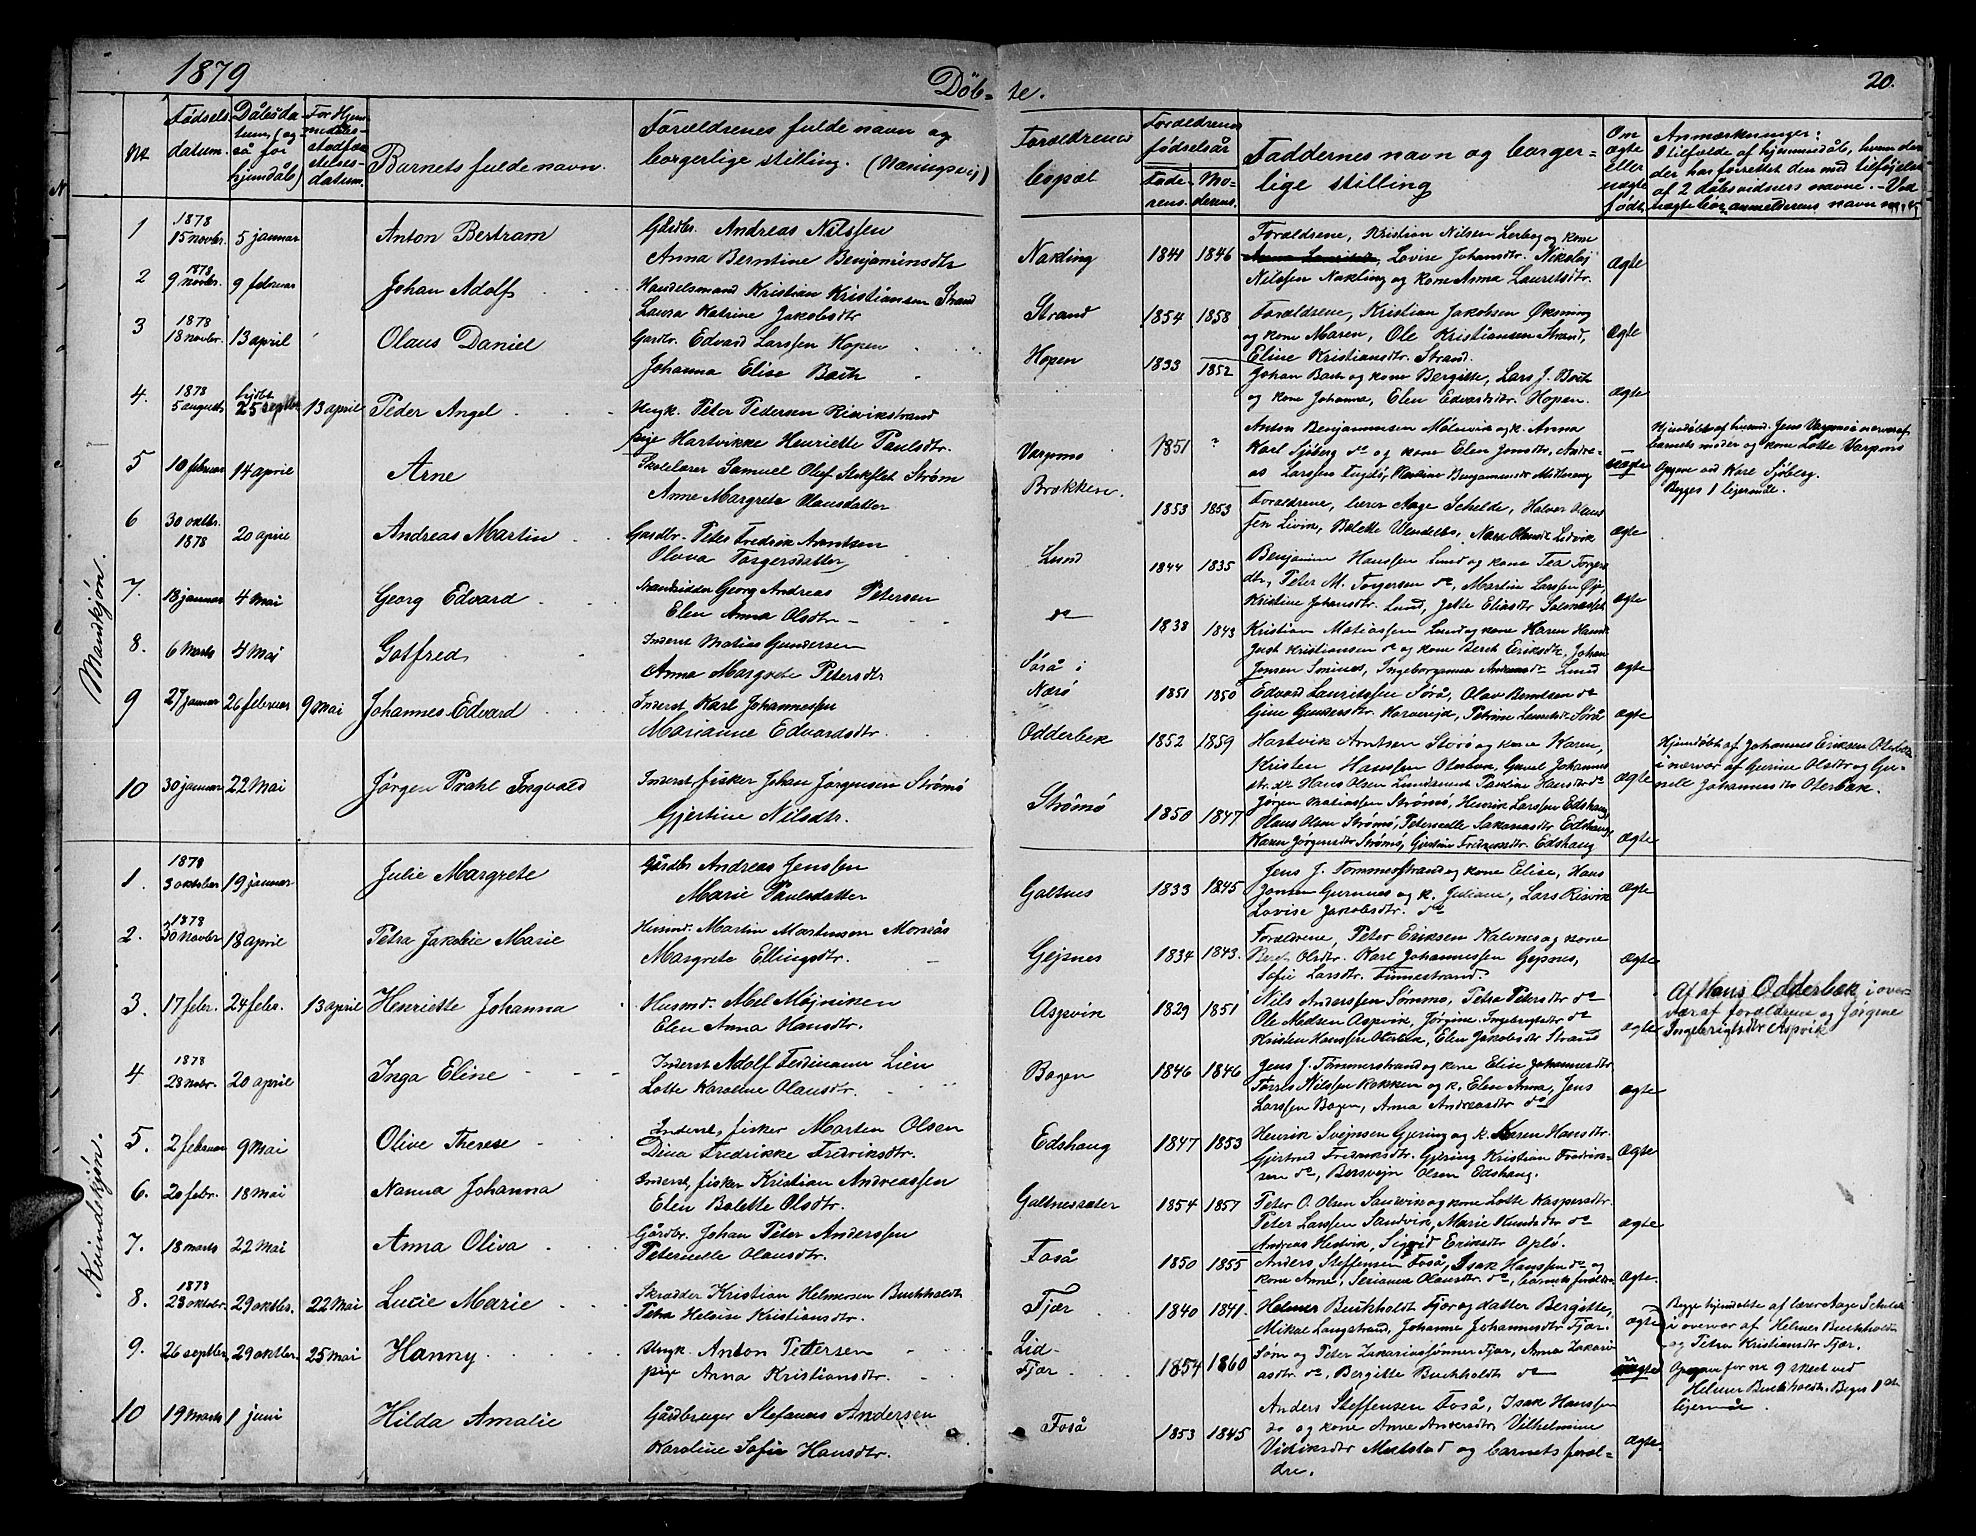 1879
Døb-
te.
20.
Nr
Fødsels
datum.
Dåbsda
tum, (og
så for
hjemdåb)
For Hjem
medøbs-
stadfæ
stelses-
datum.
Barnets fulde navn.
Forældrenes fulde navn og
borgerlige stilling.
Forældrenes
bopæl
Forældrenes
fødselsår
Fade-
rens.
Mo-
derens.
Faddernes navn og borger-
lige stilling
Om
ægte
eller
uægte
født.
Anmærkninger:
I tilfælde af hjemmedåb, hvem der
der har forrettet den med tilføjelse
af 2 dåbsvidners navne. - Ved
uægte børn anmelderens navn
Mandkjøn.
1
1878
15 novbr.
5 januar
Anton Bertram
Gårdbr. Andreas Nilssen
Anna Berntine Benjaminsdtr
Nakling
1841
1846
Forældrene, Kristian Nilsen Lerbog og kone
Lovise Johansdtr. Nikolaj
Nilssen Nakling og kone Anna Lauretsdtr.
ægte
2
1878
9 novbr.
9 februar
Johan Adolf
Handelsmand Kristian Kristiansen Strand
Laura Katrine Jakobsdtr
Strand
1854
1858
Forældrene, Kristian Jakobsen Øksning
og kone Maren, Ole Kristiansen Strand,
Eline Kristiansdtr. Strand.
ægte
3
1878
18 novbr.
13 april
Olaus Daniel
Gardbr. Edvard Larssen Hopen
Johanna Elise Bach
Hopen
1833
1852
Johan Bach og kone Bergitte, Lars J. Bach
og kone Johanna, Elen Edvardsdtr. Hopen.
ægte
4.
1878
5 august
25 septbr
13 april
Peder Angel
Ungk. Peter Pedersen Risvikstrand
pige Hartvikke Henriette Paulsdtr.
Vargmo
1851
?
Anton Benjaminsen Mølnvik og k. Anna
Karl Sjøberg do og kone Elen Jonsdtr, Andre-
as Larssen
uægte
Hjemdøbt af husmd. Jens Vargmo i nærvær af
barnets moder og kone Lotte Vargmo
Opgave ved Karl Sjøberg.
Begges 1 lejermål.
5
10 februar
14 april
Arne
Skolelærer Samuel Olef Stokflet Strøm
Anne Margrete Olausdatter
Brækken.
1853
1853
Forældrene, lærer Aage Schelde, Halvor Olaus
sen Livik, Balette Wendelbo,
ægte
6
30 oktbr.
1878
20 april
Andreas Martin
Gardbr. Peter Fredrik Arentsen
Olava Torgersdatter
Lund
1844
1835
Benjamin Hanssen Lund og kone Tea Torgers
dtr, Peter M. Torgersen do, Martin Larssen
Kristine Johansdtr. Lund, Jette Eliasdtr
ægte
7.
18 januar
4 Mai
Georg Edvard
Georg Andreas Petersen
Elen Anna Olsdtr
do
1838
1843
Kristian Matiassen Lund og kone Karen
Just Kristiansen do og kone Beret Eriksdtr, Johan
Jonsen Smines, Ingeborganna Andreasdtr Lund
ægte
8.
6 Marts
4 Mai
Gotfred
Inderst Matias Gundersen
Anne Margrete Petersdtr
Sørå i
Nærø
1851
1850
Edvard Lauritssen Sørå, Olav Berntsen do
Gine Gundersdtr. Horsereja, Petrine Lauritsdtr Sørå
ægte
9
27 januar
26 februar
9 Mai
Johannes Edvard
Inderst Karl Johannessen
Marianne Edvardsdtr.
Odderbek
1852
1859
Hartvik Arntsen Storø og kone Karen,
Kristen Hanssen Oterbæk, Gunel Johannes
dtr. do Hans Olsen Lundsaunet Pauline Hansdtr do
ægte
Hjemdøbt af Johannes Eriksen Oterbæk
i nærvær af Gurine Olsdtr og Gu-
nell Johannesdtr Oterbæk.
10
30 januar
22 Mai
Jørgen Prahl Ingvald
Inderst, fisker Johan Jørgensen Strømø
Gjertine Nilsdtr.
Strømø
1850
1847
Jørgen Matiassen Strømø, Henrik Larssen Edshaug
Olaus Olsen Strømø, Peternelle Sakariasdtr Edshaug
Karen Jørgensdtr Strømø, Gjertine Fredriksdtr Edshaug
ægte
Kvindekjøn.
1.
1878
3 oktober
19 januar
Julie Margrete
Gårdbr Andreas Jenssen
Marie Paulsdatter
Galtnes
1833
1845
Jens J. Tømmerstrand og kone Elise, Hans
Jonsen Gurnnes og k. Juliane, Lars Risvik
Lovise Jakobsdtr. do
ægte
2.
1878
30 novbr
18 april
Petra Jakobie Marie
Husmd. Martin Martinsen Morsås
Margrete Ellingsdtr.
Gejsnes
1834
1843.
Forældrene, Peter Eriksen Kalvnes og kone
Beret Olsdtr. Karl Johannessen Gejsnes,
Sofie Larsdtr. Finnestrand.
ægte
3.
17 febr.
24 febr.
13 april
Henriette Johanna
Husmd. Abel Mojniken
Elen Anna Hansdtr.
Aspvik
1829
1851
Nils Anderssen Sømmo, Petra Petersdtr do
Ole Madsen Aspvik, Jørgine Ingebrigtsdtr do
Kristen Hanssen Oterbæk, Elen Jakobsdtr Strand
ægte
Af Hans Odderbæk i over-
vær af forældrene og Jørgine
Ingebrigtsdtr Aspvik
4
1878
28 nobr.
20 april
Inga Eline
Inderst Adolf Ferdinann Lien
Lotte Karoline Olausdtr.
Bogen
1846
1846
Jens J. Tømmerstrand og kone Elise Johannesdtr
Torris Nilssen Kokken og k. Elen Anna, Jens
Larssen Bogen, Anna Andreasdtr do
ægte
5.
2 februar
9 Mai
Olive Therese
Inderst, fisker Martin Olsen
Dina Fredrikke Fredriksdtr.
Edshaug
1847
1853
Henrik Svejnsen Gjering og k. Karen Hansdtr.
Gjertrud Fredriksdtr. Gjering Kristian Fredrik-
sen do, Bersvejn Olsen Edshaug.
ægte
6.
20 febr.
18 Mai
Nanna Johanna
Inderst, fisker Kristian Andreassen
Elen Balette Olsdtr.
Galtnessæter
1854
1857
Peter O. Olsen Sandvin og kone Lotte Kaspersdtr.
Peter Larssen Sandvik, Marie Knudsdtr do
Andreas Hestvik, Sigrid Eriksdtr Oplø.
ægte
7.
18 marts
22 Mai
Anna Oliva
Gårdbr. Johan Peter Anderssen
Peternelle Olausdtr.
Foså
1850
1855
Anders Steffensen Foså, Isak Hanssen do og
kone Anne, Serianna Olausdtr. do, barnets forældre
ægte.
8.
1878
23 oktobr.
29 oktbr.
22 Mai
Lucie Marie
Skrædder Kristian Helmersen Buchholdt
Petra Heloise Kristiansdtr.
Fjær
1840
1841
Helmer Buchholdt Fjær og datter Bergitte,
Mikal Langstrand, Johanne Johannesdtr Fjær.
ægte
Begge hjemdøbte af lærer Aage Schelde
i overvær af Helmer Buchholdt
og Petra Kristiansdtr Fjær.
9.
26 septbr
29 oktbr.
25 Mai
Hanny
Ungk. Anton Pettersen
pige Anna Kristiansdtr.
Lid-
Fjær
1854
1860
Søm og Peter Zakariassønner Fjær, Anna Zakari
asdtr. do, Bergitte Buchholdt do
uægte
Opgave for no 9 skeet ved
Helmer Buchholdt. Beges 1ste
lejermål.
10
19 Marts
1 juni
Hilda Amalie
Gårdbruger Stefanus Andersen
Karoline Sofie Hansdtr.
Foså
1853
1845
Anders Steffensen Foså, Isak Hanssen
do og kone Anne Andersdtr. Vilhelmine
Vidiksdtr Matstad og barnets foræl-
dre.
ægte